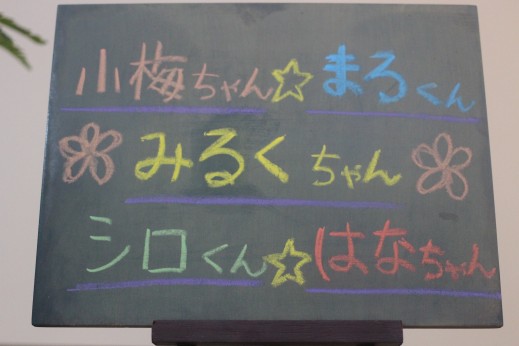 小梅ちゃん☆まろくん
みるくちゃん
シロくん☆はなちゃん